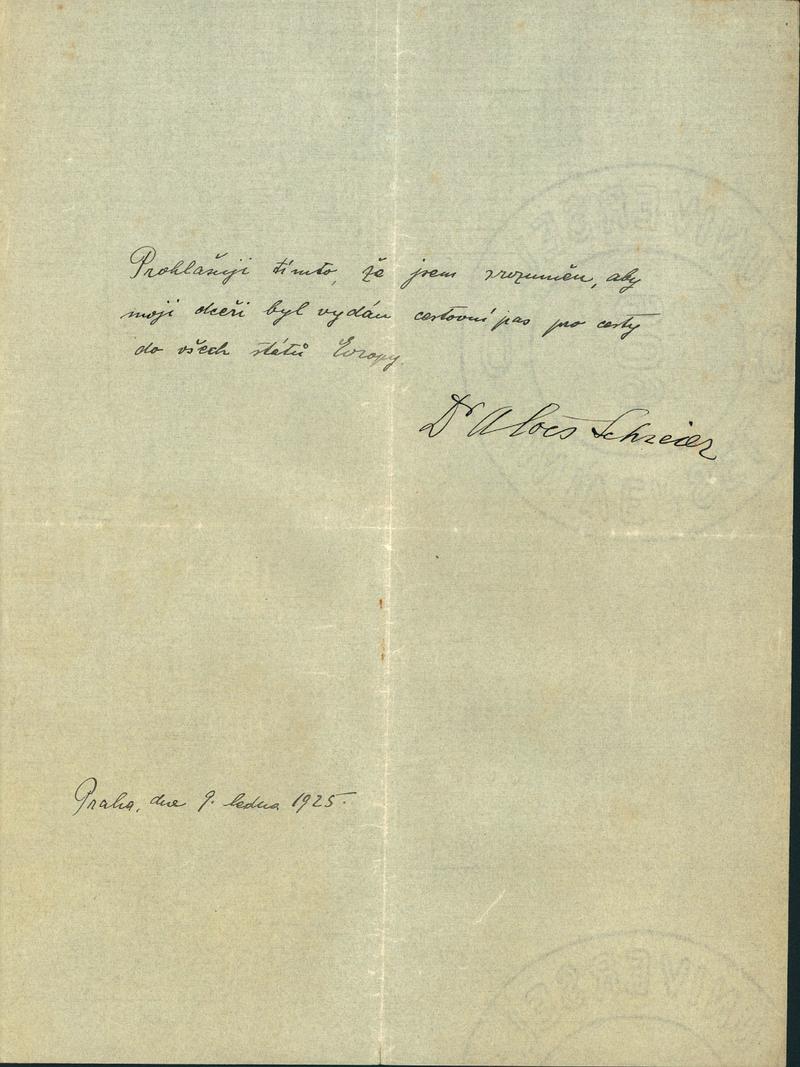 Prohlašuji tímto, že jsem srozuměn, aby
moji dceři byl vydán cestovní pas pro cesty
do všech států Evropy.
Dr Alois Schreier
Praha, dne 9. ledna 1925.